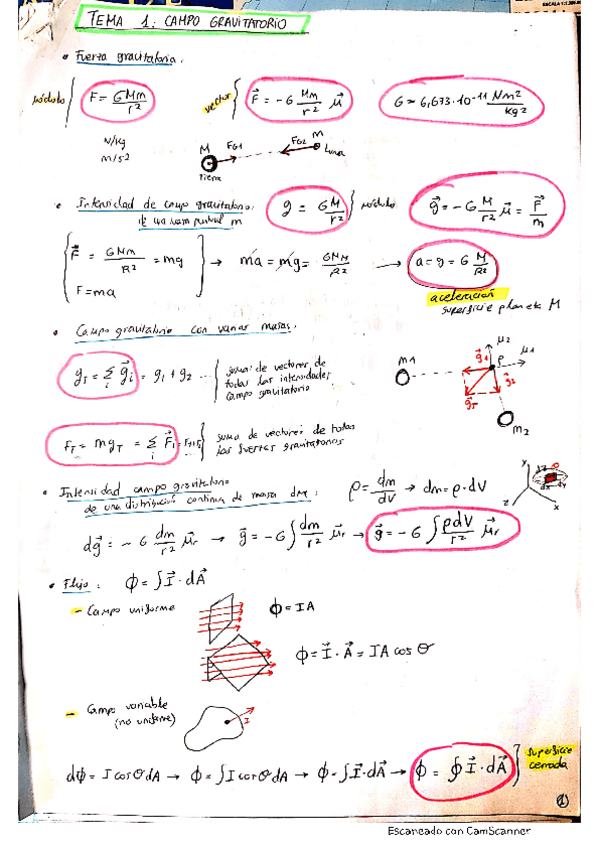 TEMA 1: CAMPO GRAVITATORIO
• Fuerza gravitatoria.
módulo { F = GMm/r² vector { F⃗ = -G Mm/r² μ⃗ G ≈ 6,673·10⁻¹¹ Nm²/kg²
N/kg
m/s²
M FG1 FG2 m
Tierra Luna
• Intensidad de campo gravitatorio. g = G M/r² } módulo g⃗ = -G M/r² μ⃗ = F⃗/m
de una masa puntual m
F⃗ = GMm/R² = mg → ma = mg = GMm/R² → a = g = G M/R²
F = ma
aceleración
superficie planeta M
• Campo gravitatorio con varias masas.
gT = Σi g⃗i = g1 + g2 ... { suma de vectores de
todas las intensidades
campo gravitatorio
m1 g⃗1 μ2 P μ1
g⃗T g⃗2
m2
FT = m gT = Σi F⃗i = F1+F2 { suma de vectores de todas
las fuerzas gravitatorias
• Intensidad campo gravitatorio
de una distribución continua de masa dm. ρ = dm/dV → dm = ρ·dV
z y x
dg⃗ = -G dm/r² μ⃗r → g⃗ = -G ∫ dm/r² μ⃗r → g⃗ = -G ∫ ρdV/r² μ⃗r
• Flujo: ϕ = ∫ I⃗·dA⃗
- Campo uniforme ϕ = IA
ϕ = I⃗·A⃗ = IA cos θ
- Campo variable
(no uniforme) I
dϕ = I cos θ dA → ϕ = ∫ I cos θ dA → ϕ = ∫ I⃗·dA⃗ → ϕ = ∮ I⃗·dA⃗ } superficie
cerrada
①
Escaneado con CamScanner